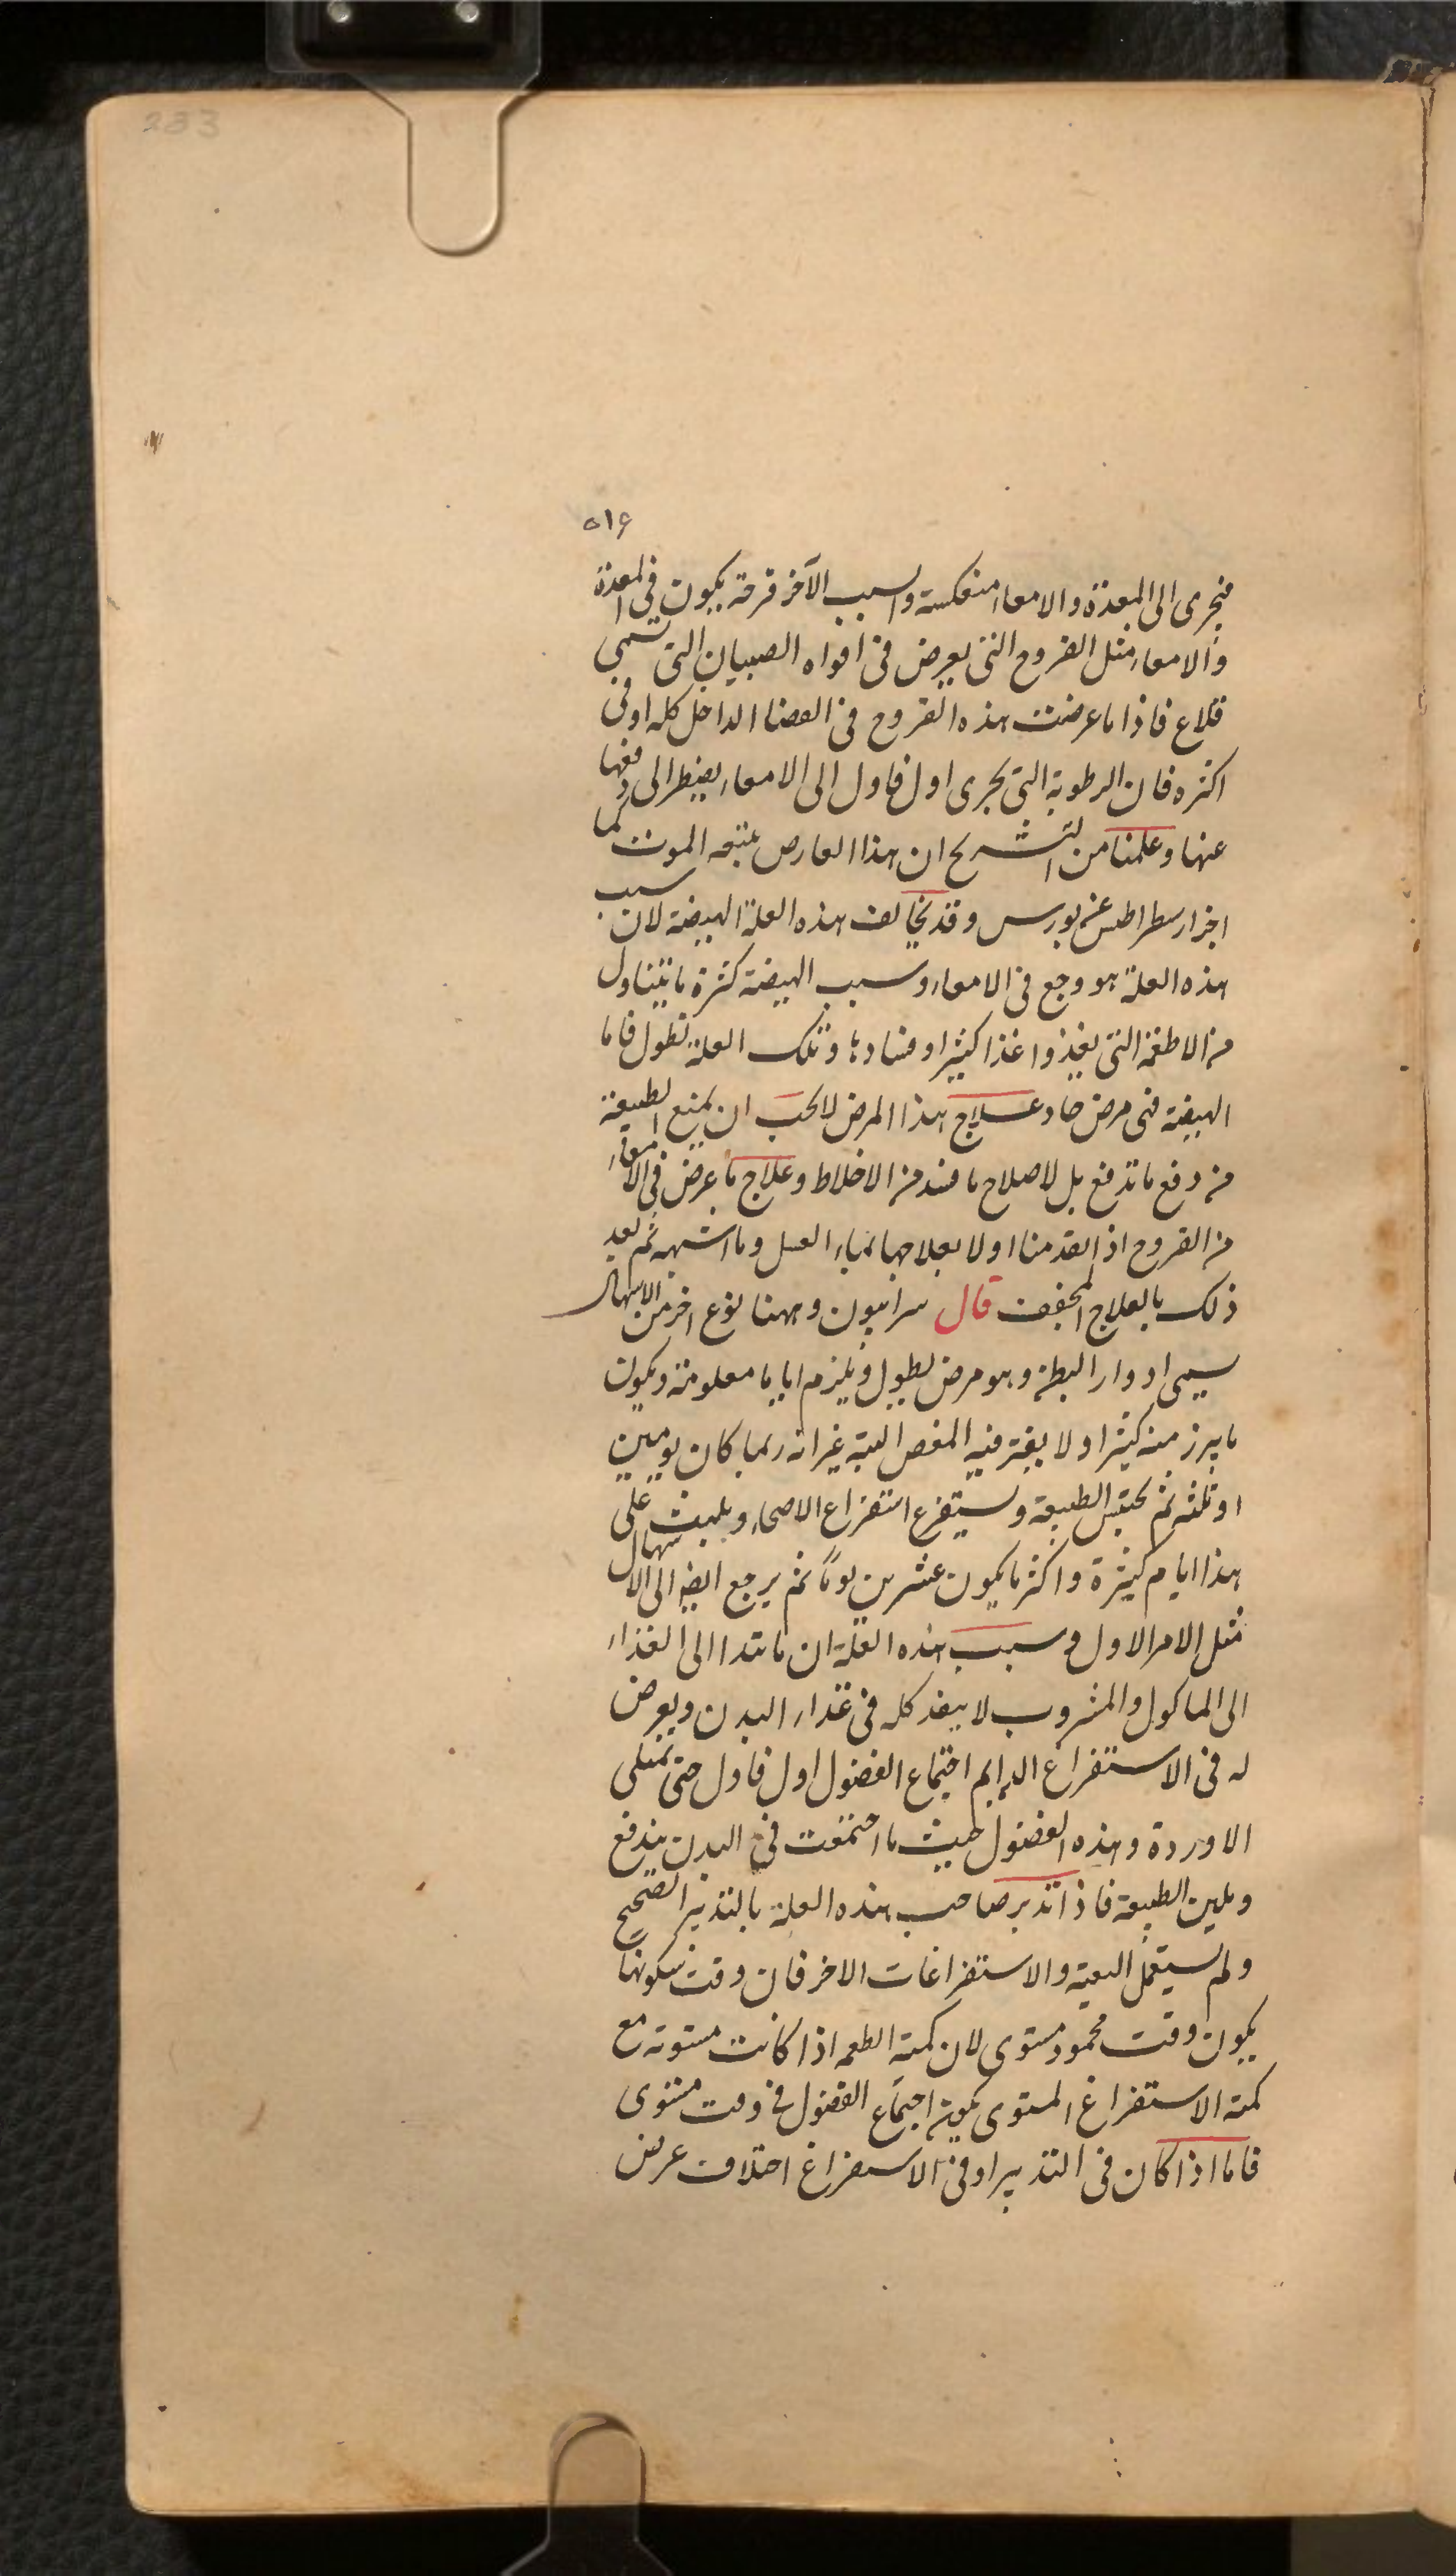 233
٥١٦
فيجرى الى المعدة والامعاء منعكسة والسبب الآخر قرحة يكون فى المعدة
والامعاء مثل القروح التى يعرض فى افواه الصبيان التى تسمى
قلاع فاذا ما عرضت هذه القروح فى العضا الداخل كله او فى
اكثره فان الرطوبة التى يجرى اول فاول الى الامعاء يضطر الى دفعها
عنها وعلمنا من التشريح ان هذا العارض يتبعه الموت كما
اخبر ارسطراطس عن بورس وقد يخالف هذه العلة الهيضة لان سبب
هذه العلة هو وجع فى الامعاء وسبب الهيضة كثرة ما يتناول
من الاطعمة التى يغذوا غذا كثيرا وفسادها وتلك العلة تطول فاما
الهيضة فهى مرض حاد علاج هذا المرض لا يحب ان يمنع الطبيعة
من دفع ما تدفع بل لاصلاح ما فسد من الاخلاط وعلاج ما عرض فى الامعاء
من القروح اذ اتقدمنا اولا بعلاجها بماء العسل وما اشبهه ثم بعد
ذلك بالعلاج المجفف قال سرابيون وههنا نوع اخر من الاسهال
يسمى ادوار البطن وهو مرض يطول ويلزم اياما معلومة ويكون
ما يبرز منه كثيرا ولا يفتر فيه المغص البتة غير انه ربما كان يومين
او ثلثه ثم تحتبس الطبيعة ويستفرغ استفراغ الاصحاء ويلبث على
هذا ايام كثيرة واكثر ما يكون عشرين يوماً ثم يرجع ايضا الى الاسهال
مثل الامر الاول وسبب هذه العلة ان ما تبدا الى الغذاء
الى الماكول والمشروب لا ينفذ كله فى غذاء البدن ويعرض
له فى الاستفراغ الدايم اجتماع الفضول اول فاول حتى تمتلى
الاوردة وهذه الفضول حيث ما اجتمعت فى البدن يندفع
ويلين الطبيعة فاذا تدبر صاحب هذه العلة بالتدبير الصحيح
ولم يستعمل التعبة والاستفراغات الاخر فان وقت سكونها
يكون وقت محمود مستوى لان كمية الطعمه اذا كانت مستوية مع
كمية الاستفراغ المستوى يكون اجتماع الفضول فى وقت مستوى
فاما اذا كان فى التدبير او فى الاستفراغ اختلاف عرض